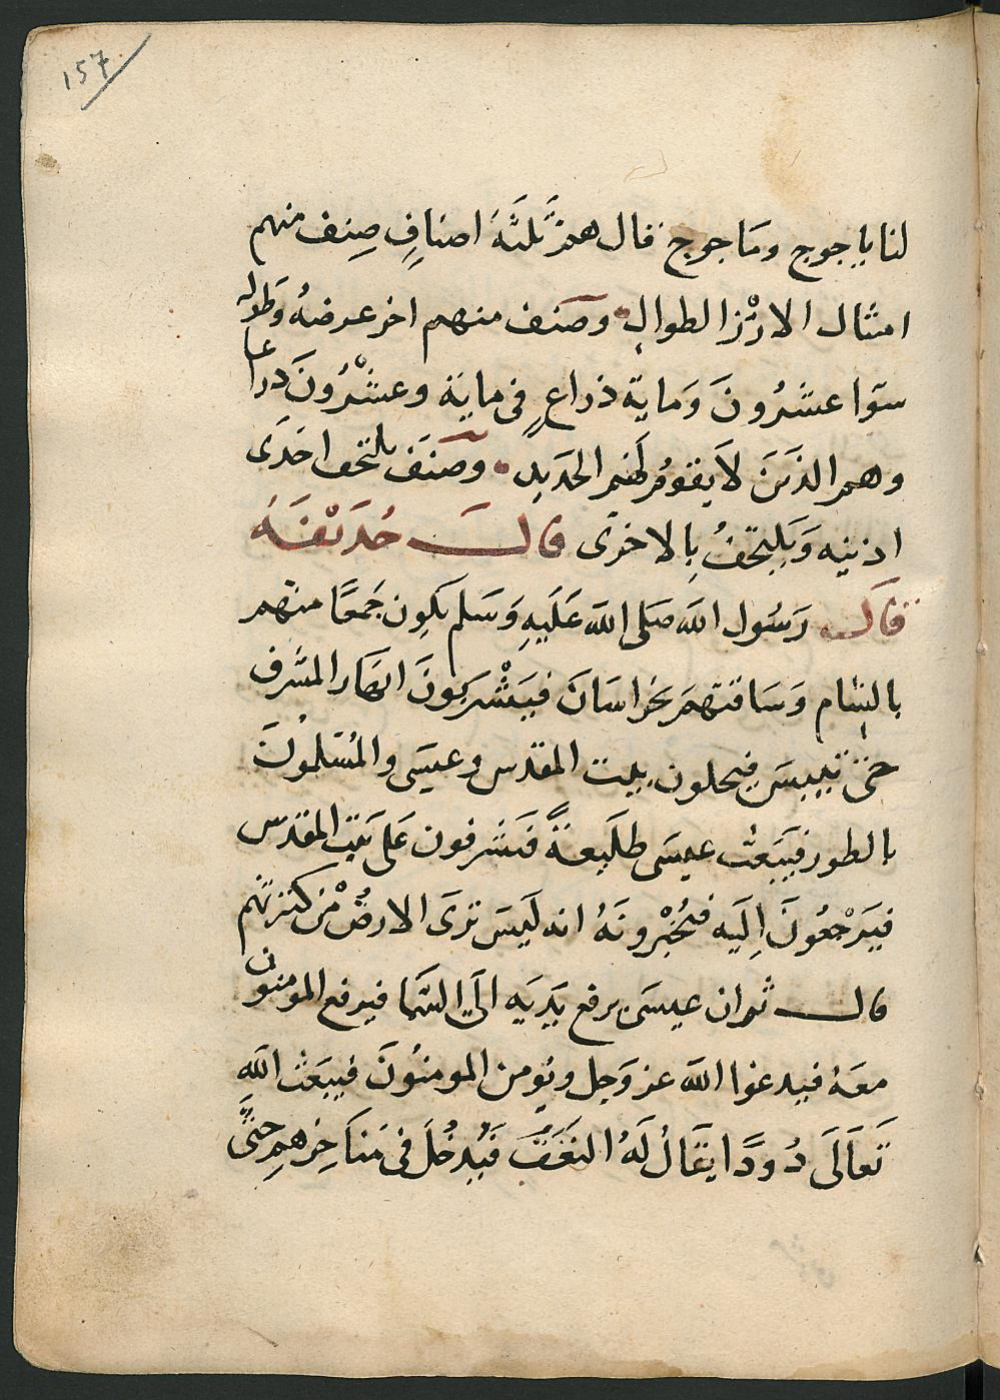 157
لنا ياجوج ومَاجوج فقال همْ ثَلثَةَ اصنافِ صِنف منهم
امثال الارْز الطوال وصنف منهم اخر عرضهُ وَطوله
سوّا عشرُونَ وَماية ذراعٍ فى ماية وعشْرُونَ ذراعا
وهم الذَين لاَ يقومُ لَهم الحَديد وصَنَف يلتحف احَدَى
اذنيه وَيَلتحَفُ بِالاخرَى قالَ حُدَيْفَهَ
قالَ رَسُول الله صَلى الله عَلَيهِ وَسَلم يكون جَمعًا منهم
بالشام وَسَاقتهمَ بخراسَانَ فيَشْرَبونَ انهَار المشرف
حَتىّ تيبسَ فيحلون ببيت المقدس وعيسَى والمُسَلموُنَ
بالطور فيَبَعَث عيسَى طلَيعةً فَشرفون عَلىَ بَيت المقدس
فيَرْجعُونَ اِلَيه فيُخْبرونَهُ انه لَيسَ ترَى الارضْ منْ كثرتهم
قال ثم ان عيسَى يرفع يَديَه الَى السَّمَا فيرفع المومنون
معَهُ فيدعوا الله عز وَجل ويُومن المومنُونَ فيبَعَث الله
تَعَالَى دُودًا يقَالُ لَهُ النغَفَ فَيُدخُلَ فى مَناَخِرهمِ حتىَّ